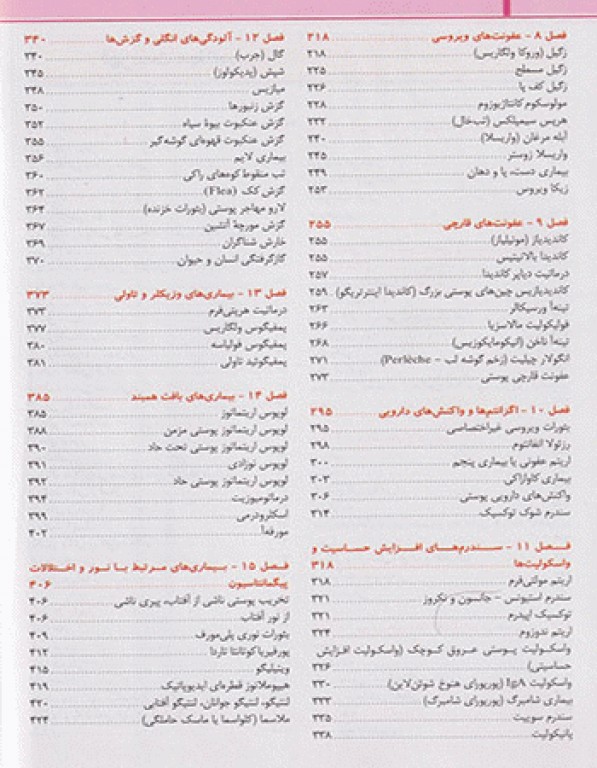 فصل ۸ - عفونت‌های ویروسی ۲۱۸
زگیل (وروکا ولگاریس) ۲۱۸
زگیل مسطح ۲۲۵
زگیل کف پا ۲۲۶
مولوسکوم کانتاژیوزوم ۲۲۸
هرپس سیمپلکس (تب‌خال) ۲۳۲
آبله مرغان (واریسلا) ۲۴۰
واریسلا زوستر ۲۴۵
بیماری دست، پا و دهان ۲۴۹
زیکا ویروس ۲۵۳
فصل ۹ - عفونت‌های قارچی ۲۵۵
کاندیدیاز (مونیلیاز) ۲۵۵
کاندیدا بالانیتیس ۲۵۵
درماتیت دیاپر کاندیدا ۲۵۷
کاندیدیازیس چین‌های پوستی بزرگ (کاندیدا اینترتریگو) ۲۵۹
تینه‌آ ورسیکالر ۲۶۳
فولیکولیت مالاسزیا ۲۶۶
تینه‌آ ناخن (انیکومایکوزیس) ۲۶۸
انگولار چیلیت (زخم گوشه لب - Perlèche) ۲۷۱
عفونت قارچی پوستی ۲۷۳
فصل ۱۰ - اگزانتم‌ها و واکنش‌های دارویی ۲۹۵
بثورات ویروسی غیراختصاصی ۲۹۵
رزئولا انفانتوم ۲۹۸
اریتم عفونی یا بیماری پنجم ۳۰۰
بیماری کاوازاکی ۳۰۳
واکنش‌های دارویی پوستی ۳۰۶
سندرم شوک توکسیک ۳۱۴
فصل ۱۱ - سندرم‌های افزایش حساسیت و
واسکولیت‌ها ۳۱۸
اریتم مولتی‌فرم ۳۱۸
سندرم استیونس - جانسون و نکروز ۳۲۱
توکسیک اپیدرم ۳۲۱
اریتم ندوزوم ۳۲۴
واسکولیت پوستی عروق کوچک (واسکولیت افزایش
حساسیتی) ۳۲۶
واسکولیت IgA (پورپورای هنوخ شوئن‌لاین) ۳۳۰
بیماری شامبرگ (پورپورای شامبرگ) ۳۳۳
سندرم سوییت ۳۳۵
پانیکولیت ۳۳۸
فصل ۱۲ - آلودگی‌های انگلی و گزش‌ها ۳۴۰
گال (جرب) ۳۴۰
شپش (پدیکولوز) ۳۴۵
میازیس ۳۴۸
گزش زنبورها ۳۵۰
گزش عنکبوت بیوهٔ سیاه ۳۵۲
گزش عنکبوت قهوه‌ای گوشه‌گیر ۳۵۵
بیماری لایم ۳۵۶
تب منقوط کوه‌های راکی ۳۶۰
گزش کک (Flea) ۳۶۲
لارو مهاجر پوستی (بثورات خزنده) ۳۶۴
گزش مورچهٔ آتشین ۳۶۷
خارش شناگران ۳۶۹
گازگرفتگی انسان و حیوان ۳۷۰
فصل ۱۳ - بیماری‌های وزیکلر و تاولی ۳۷۳
درماتیت هرپتی‌فرم ۳۷۳
پمفیگوس ولگاریس ۳۷۷
پمفیگوس فولیاسه ۳۸۰
پمفیگوئید تاولی ۳۸۱
فصل ۱۴ - بیماری‌های بافت همبند ۳۸۵
لوپوس اریتماتوز ۳۸۵
لوپوس اریتماتوز پوستی مزمن ۳۸۸
لوپوس اریتماتوز پوستی تحت حاد ۳۹۰
لوپوس نوزادی ۳۹۱
لوپوس اریتماتوز پوستی حاد ۳۹۲
درماتومیوزیت ۳۹۴
اسکلرودرمی ۳۹۹
مورفه‌آ ۴۰۲
فصل ۱۵ - بیماری‌های مرتبط با نور و اختلالات
پیگمانتاسیون ۴۰۶
تخریب پوستی ناشی از آفتاب، پیری ناشی ۴۰۶
از نور آفتاب ۴۰۶
بثورات نوری پلی‌مورف ۴۰۹
پورفیریا کوتانئا تاردا ۴۱۲
ویتیلیگو ۴۱۵
هیپوملانوز قطره‌ای ایدیوپاتیک ۴۱۹
لنتیگو، لنتیگو جوانان، لنتیگو آفتابی ۴۲۰
ملاسما (کلواسما یا ماسک حاملگی) ۴۲۴